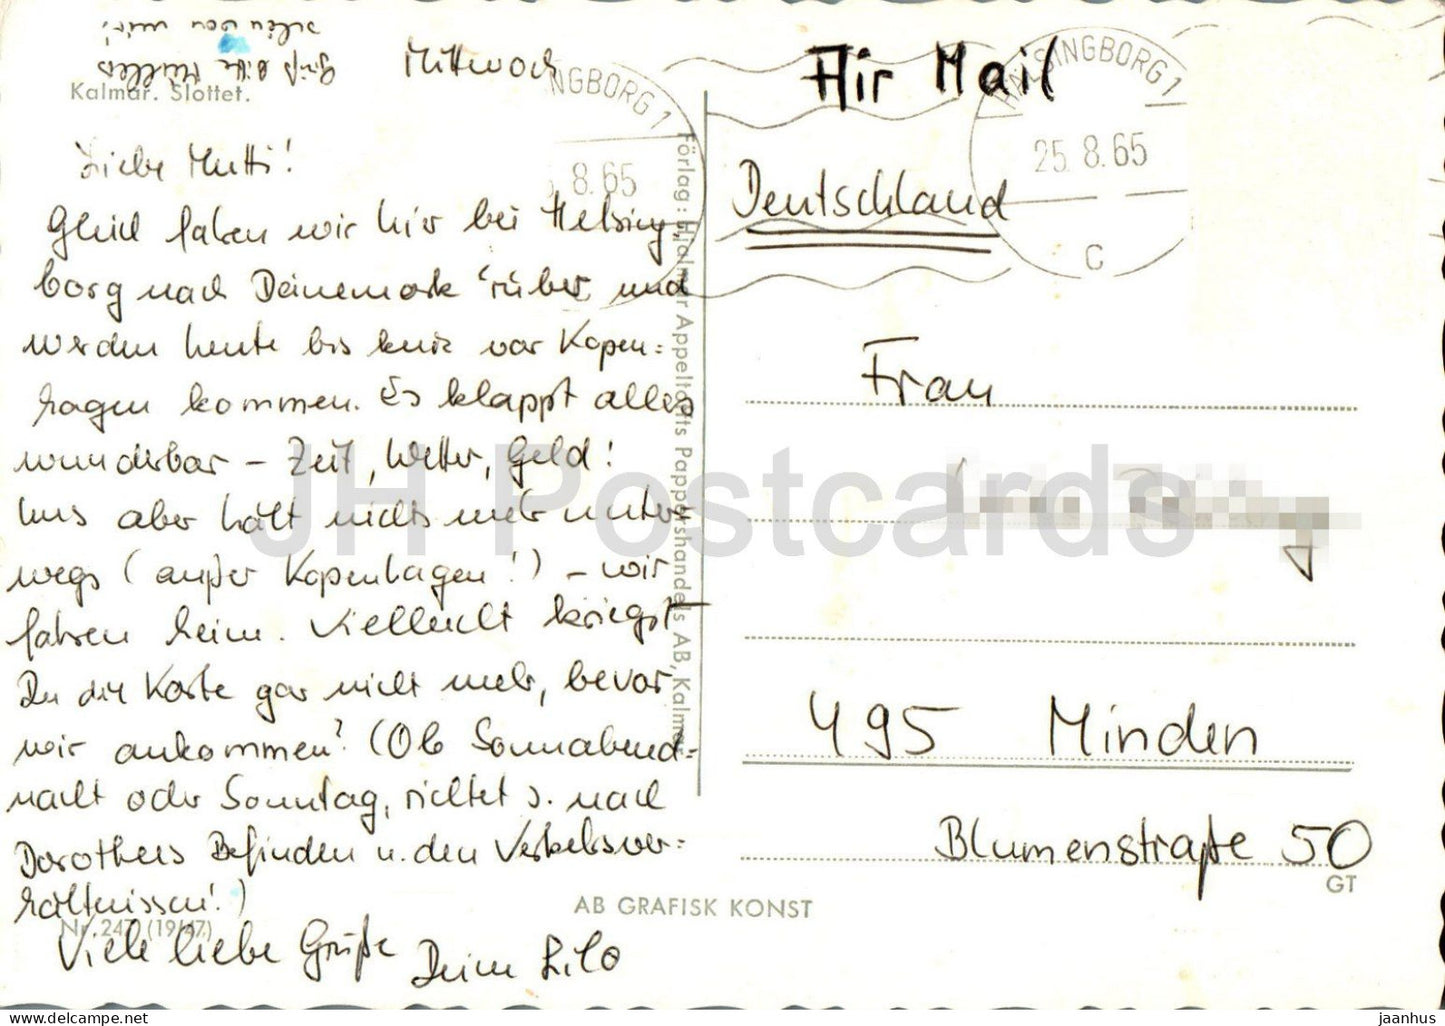 Grüß bitte Müllers
schön von mir!
Mittwoch
Kalmar. Slottet.
Liebe Mutti!
Gleich fahren wir hier bei Helsing-
borg nach Dänemark 'rüber und
werden heute bis kurz vor Kopen=
hagen kommen. Es klappt alles
wunderbar – Zeit, Wetter, Geld!
Uns aber hält nichts mehr unter
wegs (außer Kopenhagen!) – wir
fahren heim. Vielleicht kriegst
Du die Karte gar nicht mehr, bevor
wir ankommen? (Ob Sonnabend=
nacht oder Sonntag, richtet s. nach
Dorothees Befinden u. den Verkehrsver=
hältnissen!)
Viele liebe Grüße Deine Lilo
Nr. 247 (19/47)
Förlag: Hjalmar Appeltoffts Pappershandels AB, Kalmar
AB GRAFISK KONST
NGBORG 1
8.65
Air Mail
HÄLSINGBORG 1
25.8.65
C
Deutschland
Frau
495 Minden
Blumenstraße 50
GT
JH Postcards
delcampe.net
jaanhus